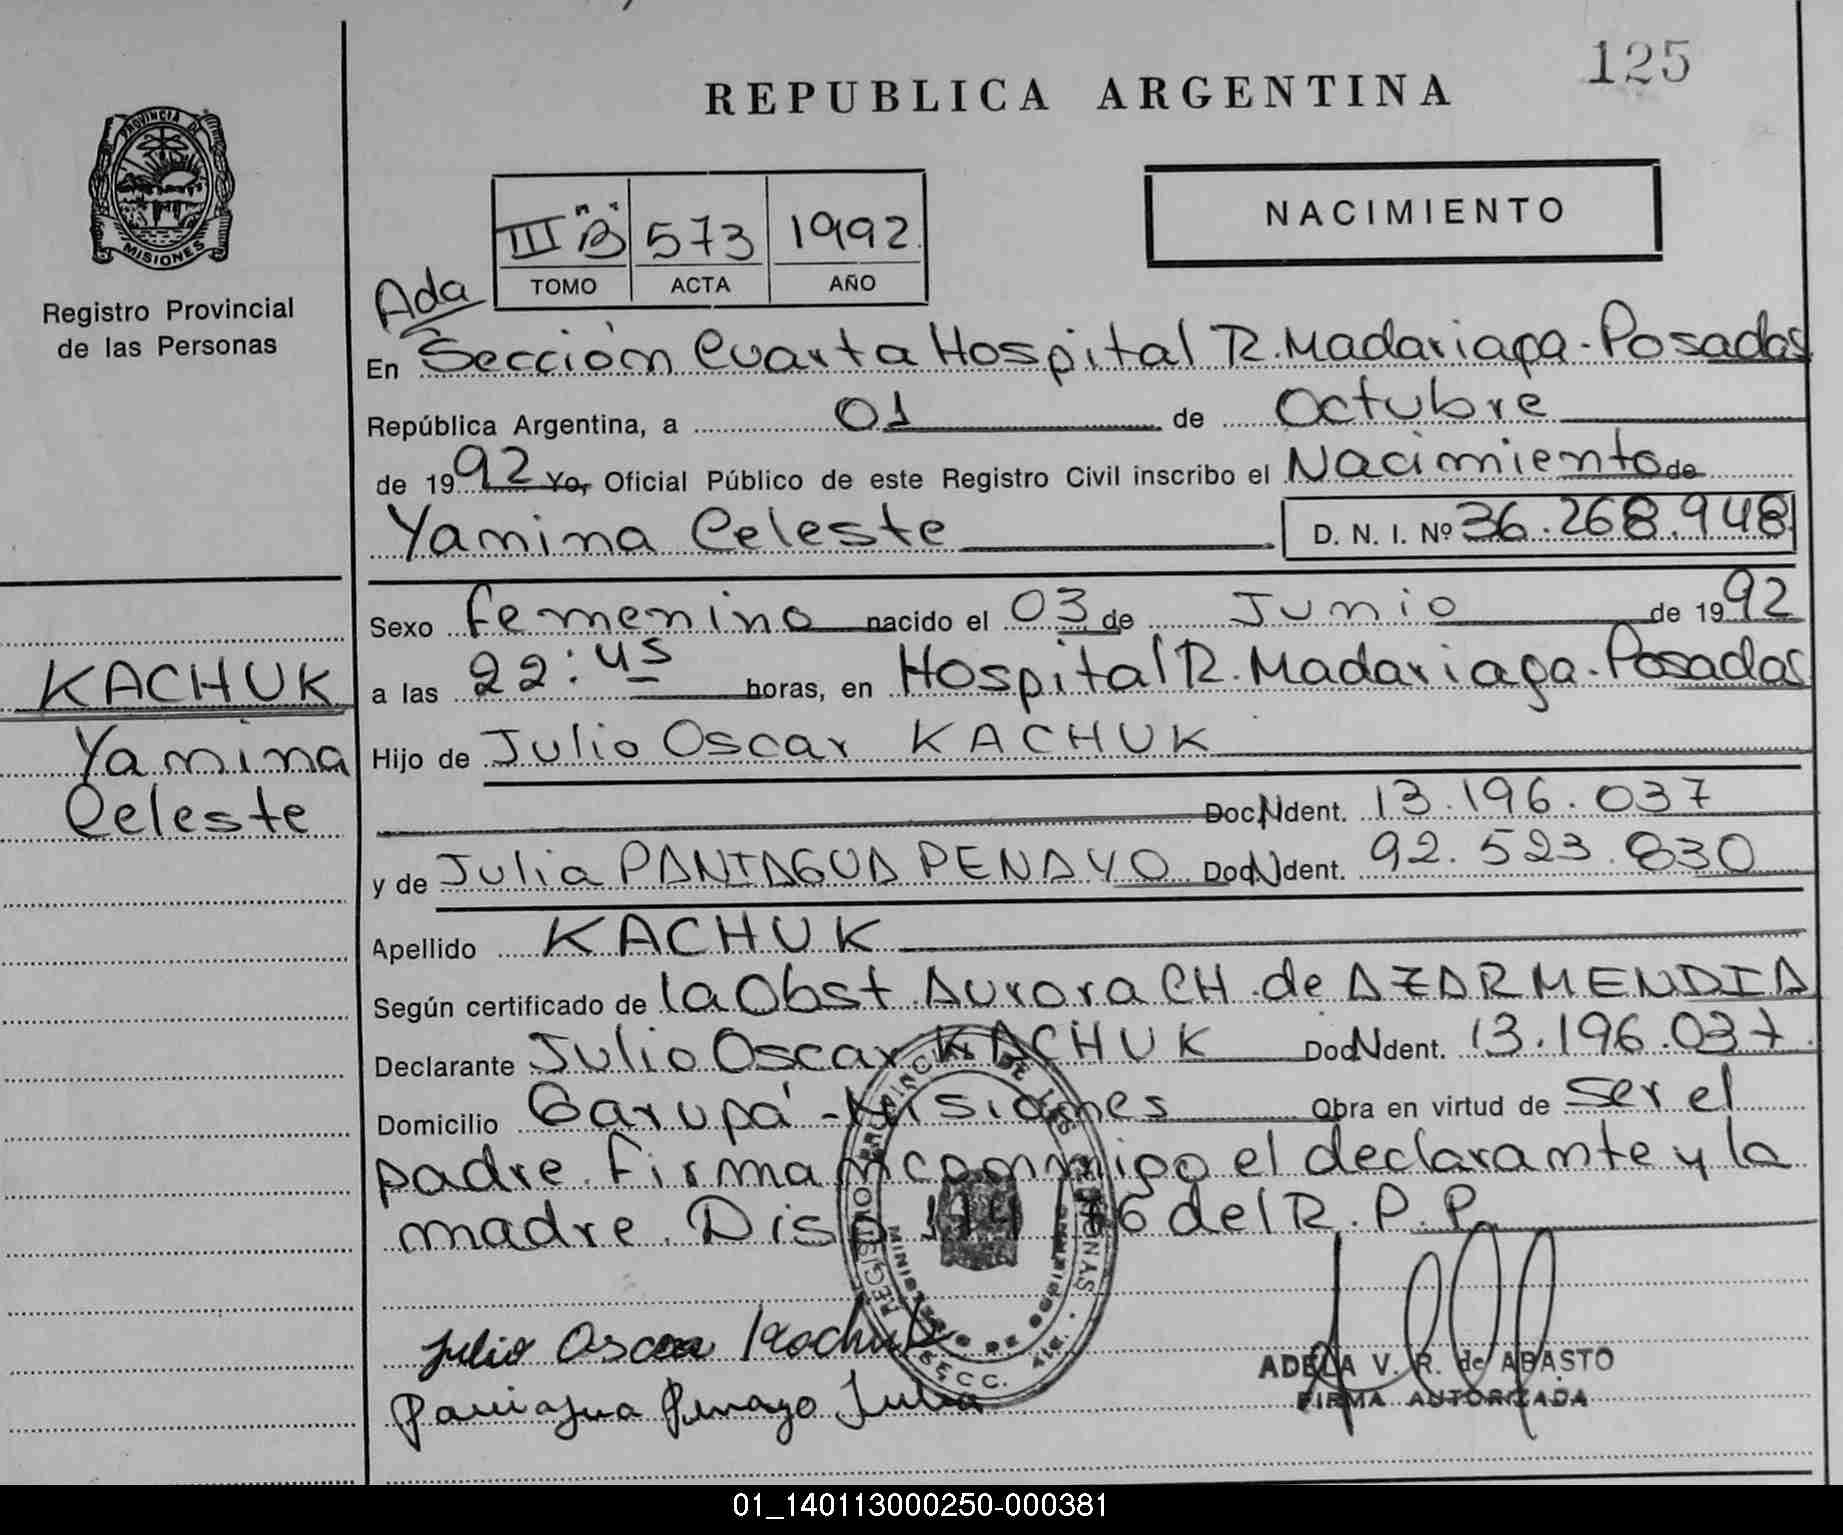 125
REPUBLICA ARGENTINA
PROVINCIA DE
MISIONES
Registro Provincial
de las Personas
III "B" 573 1992
TOMO ACTA AÑO
NACIMIENTO
Ada
En Sección Cuarta Hospital R. Madariaga - Posadas
República Argentina, a 01 de Octubre
de 1992 Yo, Oficial Público de este Registro Civil inscribo el Nacimiento de
Yamina Celeste D. N. I. Nº 36.268.948
Sexo femenino nacido el 03 de Junio de 1992
a las 22:45 horas, en Hospital R. Madariaga - Posadas
Hijo de Julio Oscar KACHUK
Doc. N Ident. 13.196.037
y de Julia PANIAGUA PENAYO Doc N Ident. 92.523.830
Apellido KACHUK
Según certificado de la Obst Aurora CH. de AZARMENDIA
Declarante Julio Oscar KACHUK Doc N Ident. 13.196.037
Domicilio Garupá - Misiones Obra en virtud de ser el
padre. Firman conmigo el declarante y la
madre. Disp 114/76 del R.P.P.
KACHUK
Yamina
Celeste
Julio Oscar Kachuk
Paniagua Penayo Julia
ADELA V. R. de ABASTO
FIRMA AUTORIZADA
01_140113000250-000381